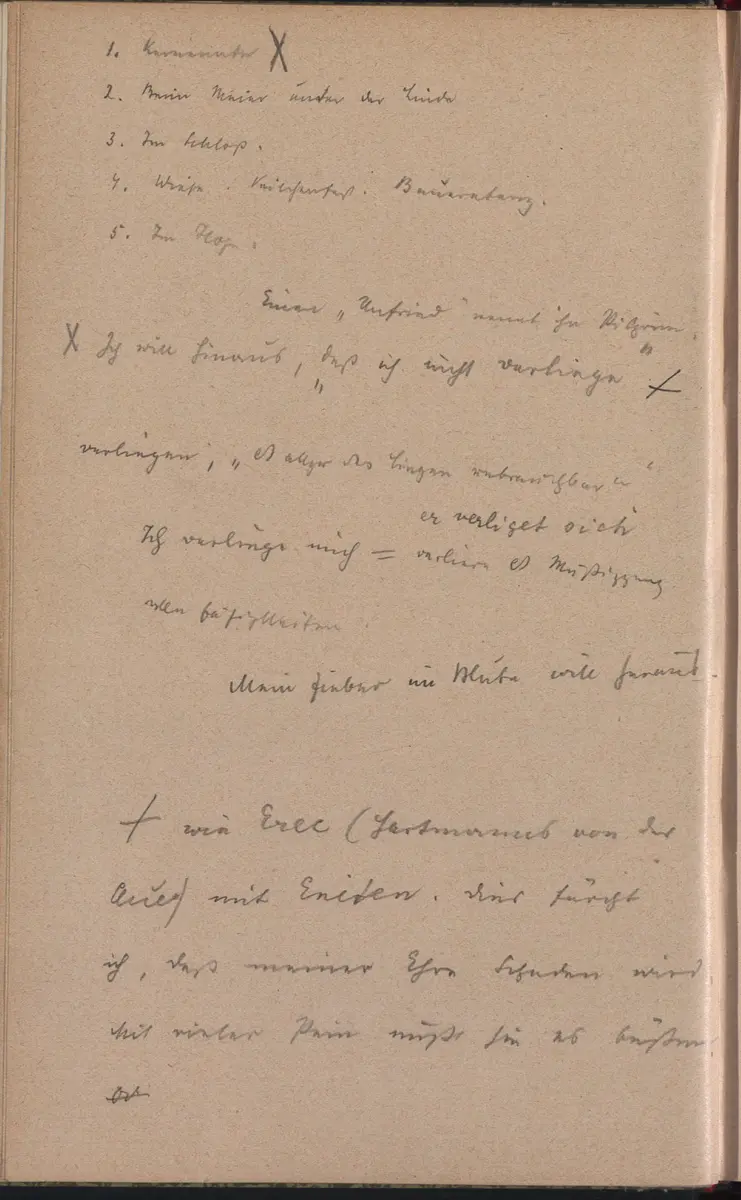 1. Kemenate X
2. Beim Meier unter der Linde
3. Im Schloß.
4. Wiese. Veilchenfest. Bauerntanz.
5. Im
Einen „Unfried" nennt ihn Pilgrim.
X Ich will hinaus, „daß ich nicht verliege" +
verliegen, „ des Liegen unbrauchbar"
er verliget sich
Ich verliege mich = verliere Müßiggang
Fähigkeiten.
Mein Fieber im Blute will heraus.
+ wie Erec (Hartmanns von der
Aue) mit Eniten. Dies fürcht
ich, daß meiner Ehre Schaden wird
Mit vieler Pein mußt sie es büßen